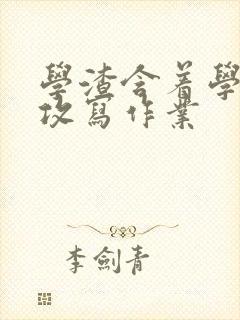 學渣含着學
攻寫作業
李劍青